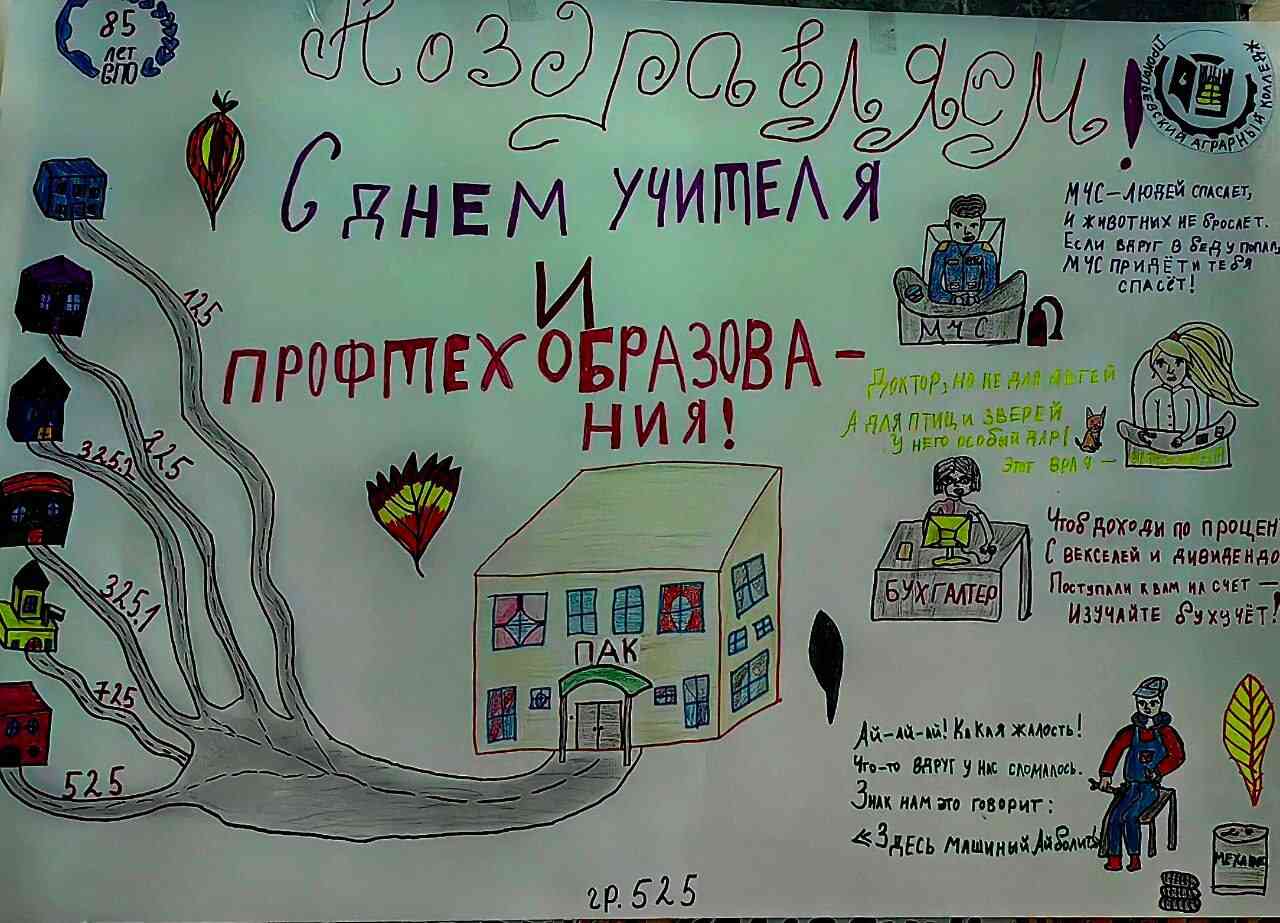 85
лет
СПО
Поздравляем!
ПРОКОПЬЕВСКИЙ АГРАРНЫЙ КОЛЛЕДЖ
С ДНЕМ УЧИТЕЛЯ
И
ПРОФТЕХОБРАЗОВА-
НИЯ!
МЧС-ЛЮДЕЙ СПАСАЕТ,
И ЖИВОТНЫХ НЕ БРОСАЕТ.
ЕСЛИ ВДРУГ В БЕДУ ПОПАЛ,
МЧС ПРИДЁТ И ТЕБЯ
СПАСЁТ!
МЧС
ДОКТОР, НО НЕ ДЛЯ ДЕТЕЙ
А ДЛЯ ПТИЦ И ЗВЕРЕЙ
У НЕГО ОСОБЫЙ ДАР!
ЭТОТ ВРАЧ -
БУХГАЛТЕР
ЧТОБ ДОХОДЫ ПО ПРОЦЕН
С ВЕКСЕЛЕЙ И ДИВИДЕНДО
ПОСТУПАЛИ К ВАМ НА СЧЕТ -
ИЗУЧАЙТЕ БУХУЧЁТ!
125
225
325.2
325.1
725
525
ПАК
АЙ-АЙ-АЙ! КАКАЯ ЖАЛОСТЬ!
ЧТО-ТО ВДРУГ У НАС СЛОМАЛОСЬ.
ЗНАК НАМ ЭТО ГОВОРИТ:
«ЗДЕСЬ МАШИННЫЙ АЙБОЛИТ»
гр. 525